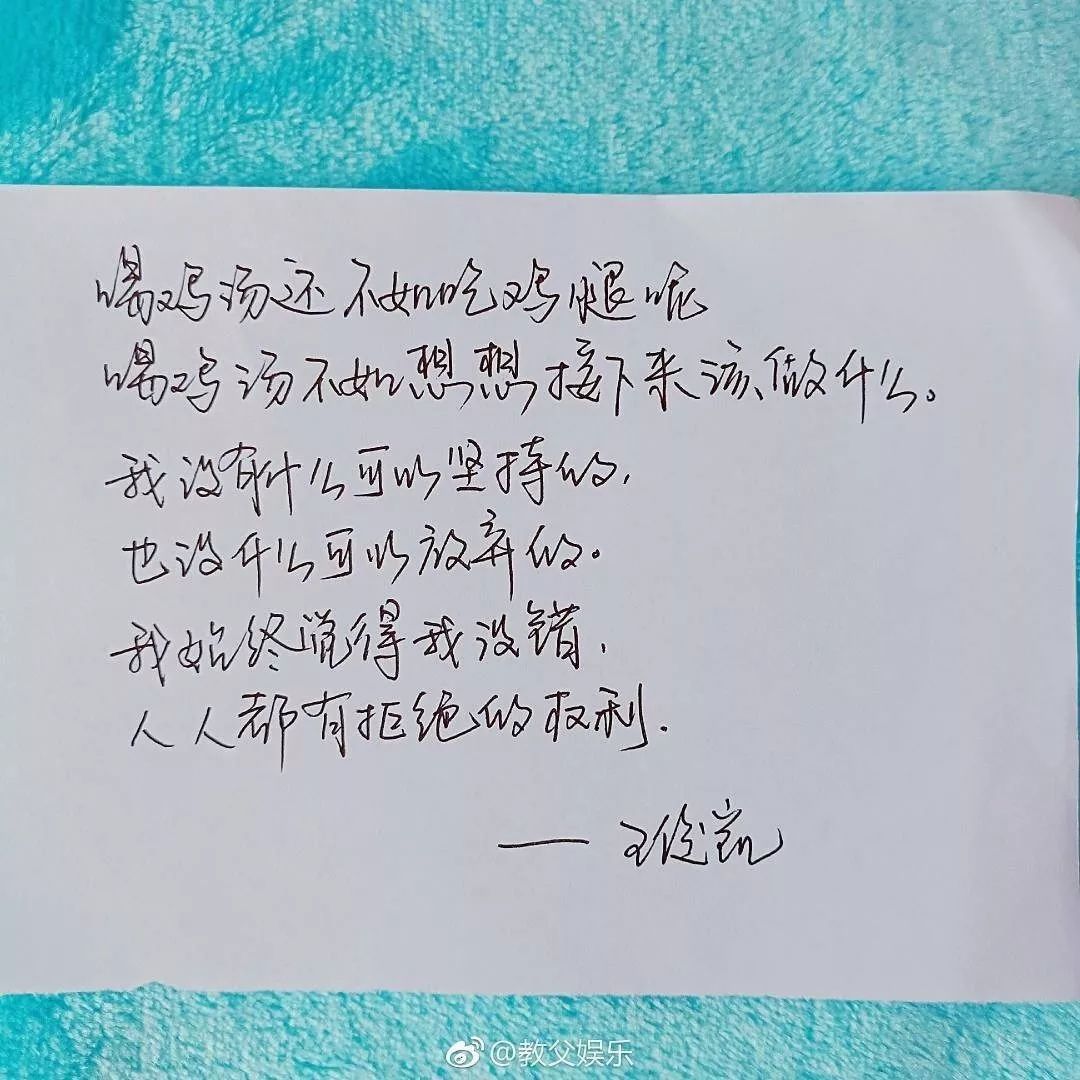 喝鸡汤还不如吃鸡腿呢
喝鸡汤不如想想接下来该做什么。
我没有什么可以坚持的，
也没什么可以放弃的。
我始终觉得我没错，
人人都有拒绝的权利.
——王俊凯
@教父娱乐